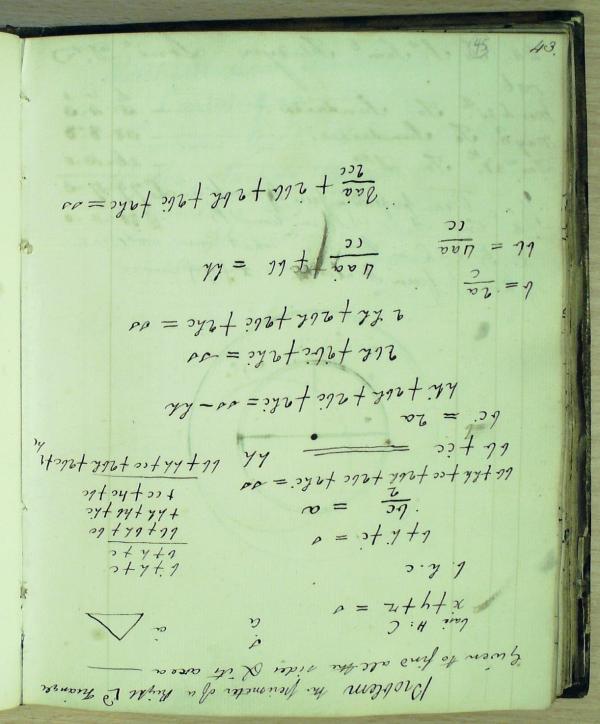 43.
Problem the perimeter of a Right Ld Triangle
Given to find all the sides & its area
base H: C
s
a
a
x + y + z = s
b. h. c
b + h + c = s
bc/2 = a
bb + hh + cc + 2bh + 2bc + 2hc = ss
bb + cc = hh
bc = 2a
hh + 2bh + 2bc + 2hc = ss - hh
2bh + 2bc + 2hc = ss
2hh + 2bh + 2bc + 2hc = ss
4aa/cc + cc = hh
8aa/2cc + 2bb + 2bh + 2bc + 2hc = ss
b + h + c
b + h + c
bb + bh + bc
+ hh + hb + hc
+ cc + hc + bc
bb + hh + cc + 2bh + 2bc + 2hc
b = 2a/c
bb = 4aa/cc